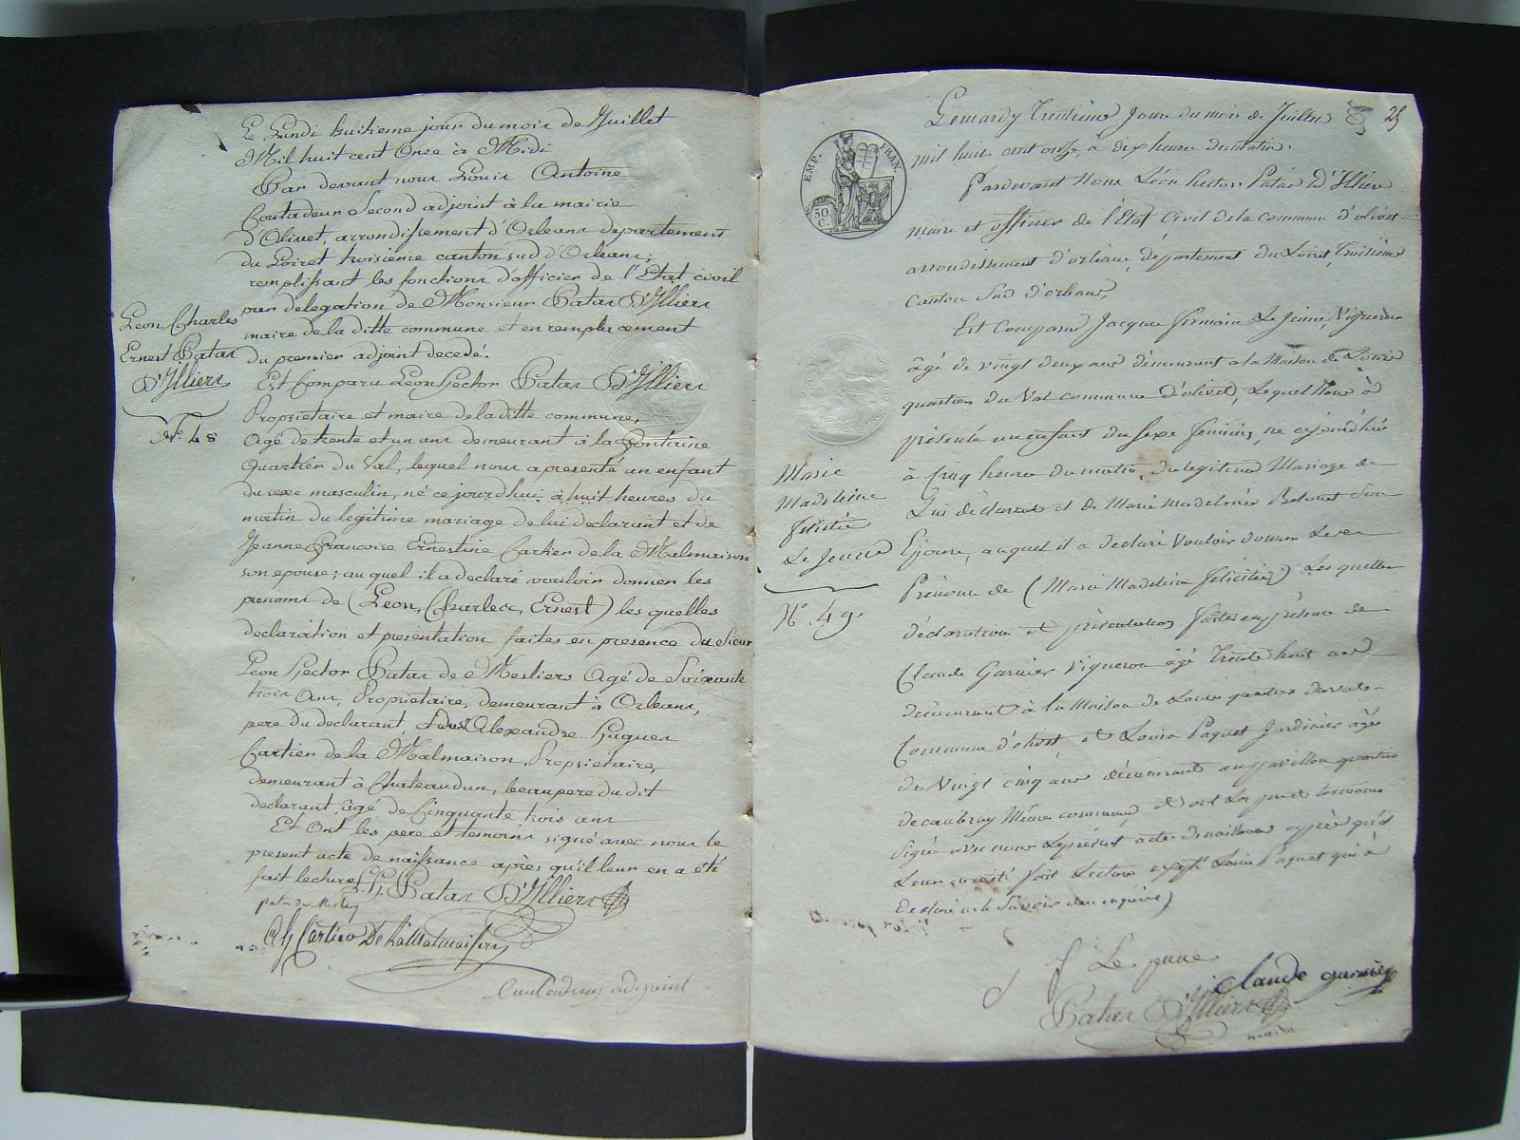 Le Lundi huitieme jour du mois de Juillet
Mil huit cent Onze à Midi
Par devant nous Louis Antoine
Coutadeur Second adjoint à la mairie
d'Olivet, arrondissement d'Orleans departement
du Loiret troisieme canton sud d'Orleans,
remplissant les fonctions d'officier de l'Etat civil
par delegation de Monsieur Patas D'Illiers
maire de la ditte commune et en remplacement
du premier adjoint decedé.
Leon Charles
Ernest Patas
D'Illiers
N°. 48
Est Comparu Leon Hector Patas D'Illiers
Propriétaire et maire de la ditte commune,
Agé de trente et un ans demeurant à la fontaine
Quartier du Val, lequel nous a presenté un enfant
du sexe masculin, né ce jourdhui à huit heures du
matin du legitime mariage de lui declarant et de
Jeanne Francoise Ernestine Cartier de la Malmaison
son epouse; au quel il a declaré vouloir donner les
prenoms de (Leon, Charles, Ernest) les quelles
declaration et presentation faites en presence du Sieur
Leon Hector Patas de Mesliers Agé de Soixante
trois Ans, Propriétaire, demeurant à Orleans,
pere du declarant et du S. Alexandre Hugues
Cartier de la Malmaison, Propriétaire,
demeurant à Chateaudun, beaupere du dit
declarant, âgé de Cinquante trois ans
Et Ont les pere et temoins signé avec nous le
present acte de naissance après qu'il leur en a été
fait lecture, L. H. Patas D'Illiers
Cartier De la Malmaison
Coutadeur adjoint
25
EMP. FRAN.
50 C.
Le mardy Treizième Jour du mois de Juillet
mil huit cent onze, à dix heures du matin.
Pardevant Nous Léon hector Patas D'Illiers
maire et officier de l'Etat Civil de la commune d'olivet
arrondissement d'orléans, departement du Loiret, Troisième
Canton Sud d'orleans,
Est Comparu Jacques Germain Le Jeune, Vigneron
âgé de vingt deux ans demeurant a la Maison de Louis
quartier du Val commune d'olivet, Lequel Nous à
présenté un enfant du Sexe féminin, né aujourd'hui
à Cinq heures du matin, du legitime Mariage de
Lui déclarant et de Marie Madeleine Son
Epouse, auquel il a déclaré Vouloir donner Les
Prénoms de (Marie Madeleine félicitée) Les quelles
déclaration et présentation faites en présence de
Marie
Madeleine
félicitée
Le Jeune
N°. 49.
Claude Garnier Vigneron âgé Trente huit ans
demeurant à la Maison de Louis quartier du val
Commune d'olivet et Louis Paquet Jardinier âgé
de Vingt cinq ans demeurant au pavillon quartier
de caubray Même commune et ont Les pere et temoins
Signé avec nous Le présent acte de naissance après qu'il
Leur en a été fait Lecture excepté Louis Paquet qui à
Déclaré ne le Savoir de ce requis)
J Le jeune
Claude garnier
Patas D'Illiers
maire